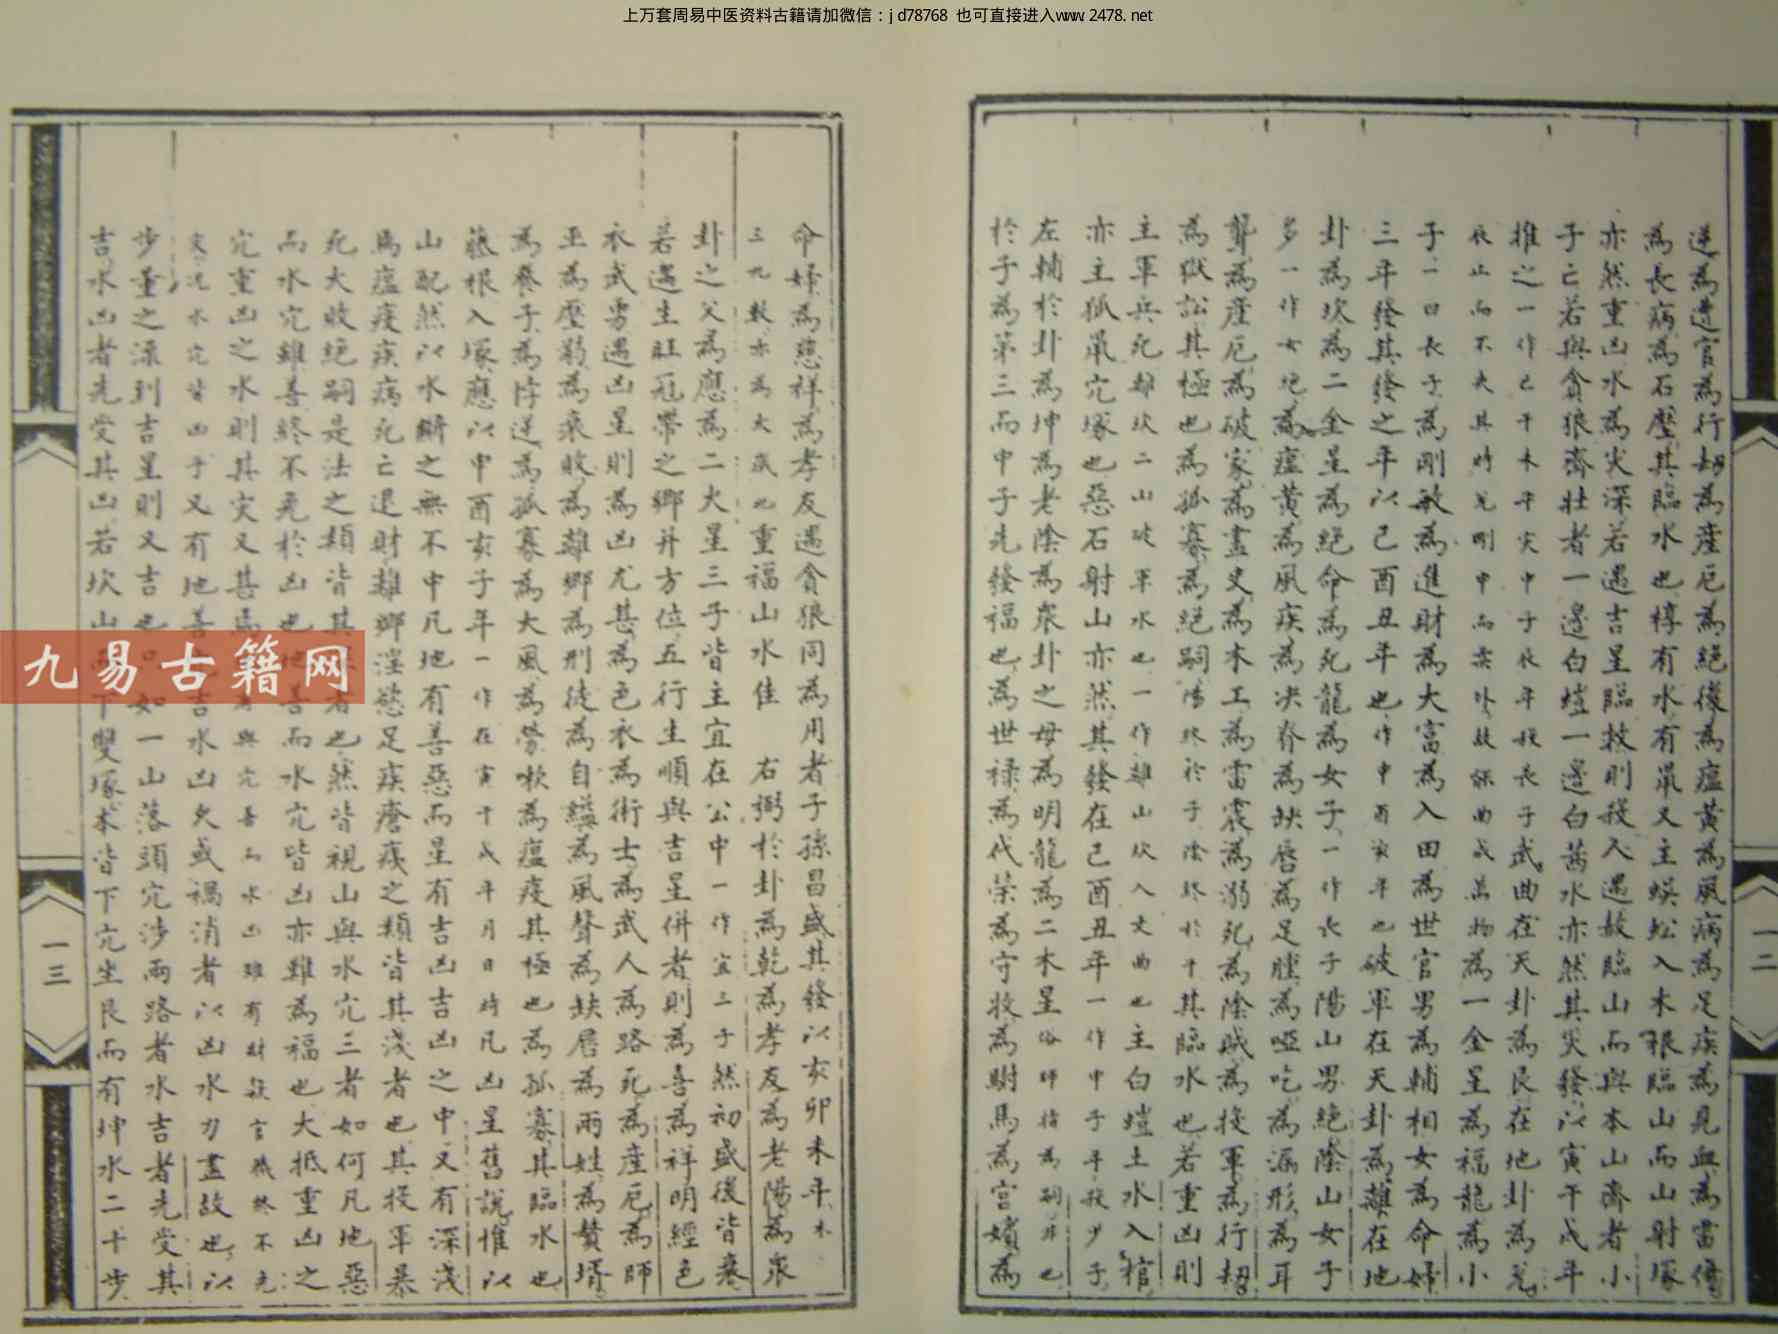 上万套周易中医资料古籍请加微信：jd78768 也可直接进入www.2478.net
逆為遭官為行劫為產厄為絕後為瘟黃為風病為足疾為見血為雷傷
為長病為石壓其臨水也椁有水有鼠又主蜈蚣入木根臨山而山射塚
亦然重凶水為災深若遇吉星臨救則殺入遇敵臨山而與本山齊者小
子亡若與貪狼齊壯者一邊白蟻一邊白茜水亦然其災發以寅午戌年
推之一作巳干木干災中子長年投長子武曲在天卦為艮在地卦為兌
為一金星為福龍為小
子一曰長子為剛敏為進財為大富為入田為世官男為輔相女為命婦
三年發其發之年以己酉丑年也作申酉亥年也破軍在天卦為離在地
卦為坎為二金星為絕命為死龍為女子一作長子陽山男絕陰山女子
多一作女絕為瘟黃為風疾為決脊為缺唇為足腫為啞吃為漏形為耳
聾為產厄為破家為畫史為木工為雷震為溺死為陰賊為投軍為行劫
為獄訟其極也為孤寡為絕嗣陽終於子陰終於干其臨水也若重凶則
主軍兵死離坎二山破軍水也一作離山坎入文曲也主白蟻土水入棺
亦主狐鼠穴塚也惡石射山亦然其發在己酉丑年一作中子年投少子
左輔於卦為坤為老陰為眾卦之母為明龍為二木星俗師指為弼非也
於子為第三而中子先發福也為世祿為代榮為守牧為駙馬為宮嬪為
命婦為慈祥為孝友遇貪狼同為用者子孫昌盛其發以亥卯未年木
三九數亦為大歲也重福山水佳 右弼於卦為乾為孝友為老陽為眾
卦之父為應為二火星三子皆主宜在公中一作宜三子然初盛後皆衰
若遇生旺冠帶之鄉并方位五行生順與吉星併者則為喜為祥明經色
衣武男遇凶星則為凶尤甚為色衣為術士為武人為路死為產厄為師
巫為壓溺為衰敗為離鄉為刑徒為自縊為風聲為缺唇為兩姓為贅壻
為養子為悖逆為孤寡為大風為勞嗽為瘟疫其極也為孤寡其臨水也
藤根入塚應以申酉亥子年一作在寅午戌年月日時凡凶星舊說惟以
山配然以水辯之無不中凡地有善惡而星有吉凶吉凶之中又有深淺
為瘟疫疾病死亡退財離鄉淫慾足疾瘡痍之類皆其淺者也其投軍暴
死大敗絕嗣是法之類皆其者也然皆視山與水穴三者如何凡地惡
而水穴雖善終不免於凶也地善而水穴皆凶亦雖為福也大抵重凶之
穴重凶之水則其災又甚焉者與穴善而水凶雖有財祿官職終不免
災况水穴皆凶乎又有地善吉水凶久或禍消者以凶水力盡故也以
步量之深到吉星則又吉也如一山落頭穴涉兩路者水吉者先受其
吉水凶者先受其凶若坎山下雙塚本皆下穴坐艮而有坤水二十步
一二
一三
九易古籍网